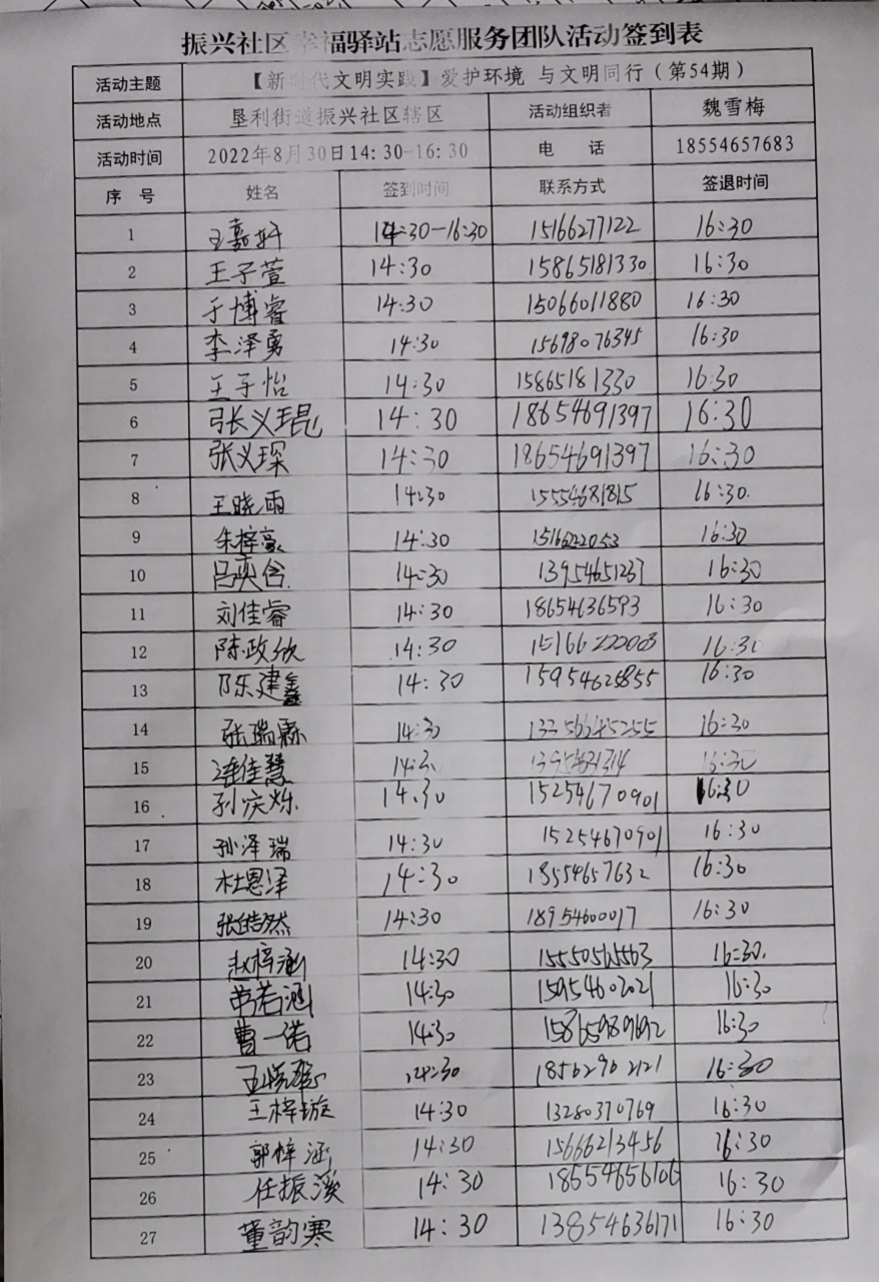 振兴社区幸福驿站志愿服务团队活动签到表
活动主题 【新时代文明实践】爱护环境 与文明同行（第54期）
活动地点 垦利街道振兴社区辖区 活动组织者 魏雪梅
活动时间 2022年8月30日14:30-16:30 电 话 18554657683
序 号 姓名 签到时间 联系方式 签退时间
1 王嘉轩 14:30-16:30 15166277122 16:30
2 王子萱 14:30 15865181330 16:30
3 于博睿 14:30 15066011880 16:30
4 李泽勇 14:30 15698076345 16:30
5 王子怡 14:30 15865181330 16:30
6 张义琨 14:30 18654691397 16:30
7 张义琛 14:30 18654691397 16:30
8 王晓雨 14:30 15554681815 16:30
9 朱梓豪 14:30 16:30
10 吕奕含 14:30 13954651237 16:30
11 刘佳睿 14:30 18654636593 16:30
12 陈政欣 14:30 16:30
13 陈建鑫 14:30 15954625855 16:30
14 张瑞霖 14:30 16:30
15 佳慧 16:30
16 孙庆烁 14:30 15254670901 16:30
17 孙泽瑞 14:30 15254670901 16:30
18 杜恩泽 14:30 18554657632 16:30
19 张皓然 14:30 18954600017 16:30
20 赵梓涵 14:30 16:30
21 若涵 14:30 15954602021 16:30
22 曹一诺 14:30 16:30
23 14:30 18562962121 16:30
24 王梓璇 14:30 13280370769 16:30
25 郭梓涵 14:30 15666213456 16:30
26 任振溪 14:30 18654656106 16:30
27 董韵寒 14:30 13854636171 16:30